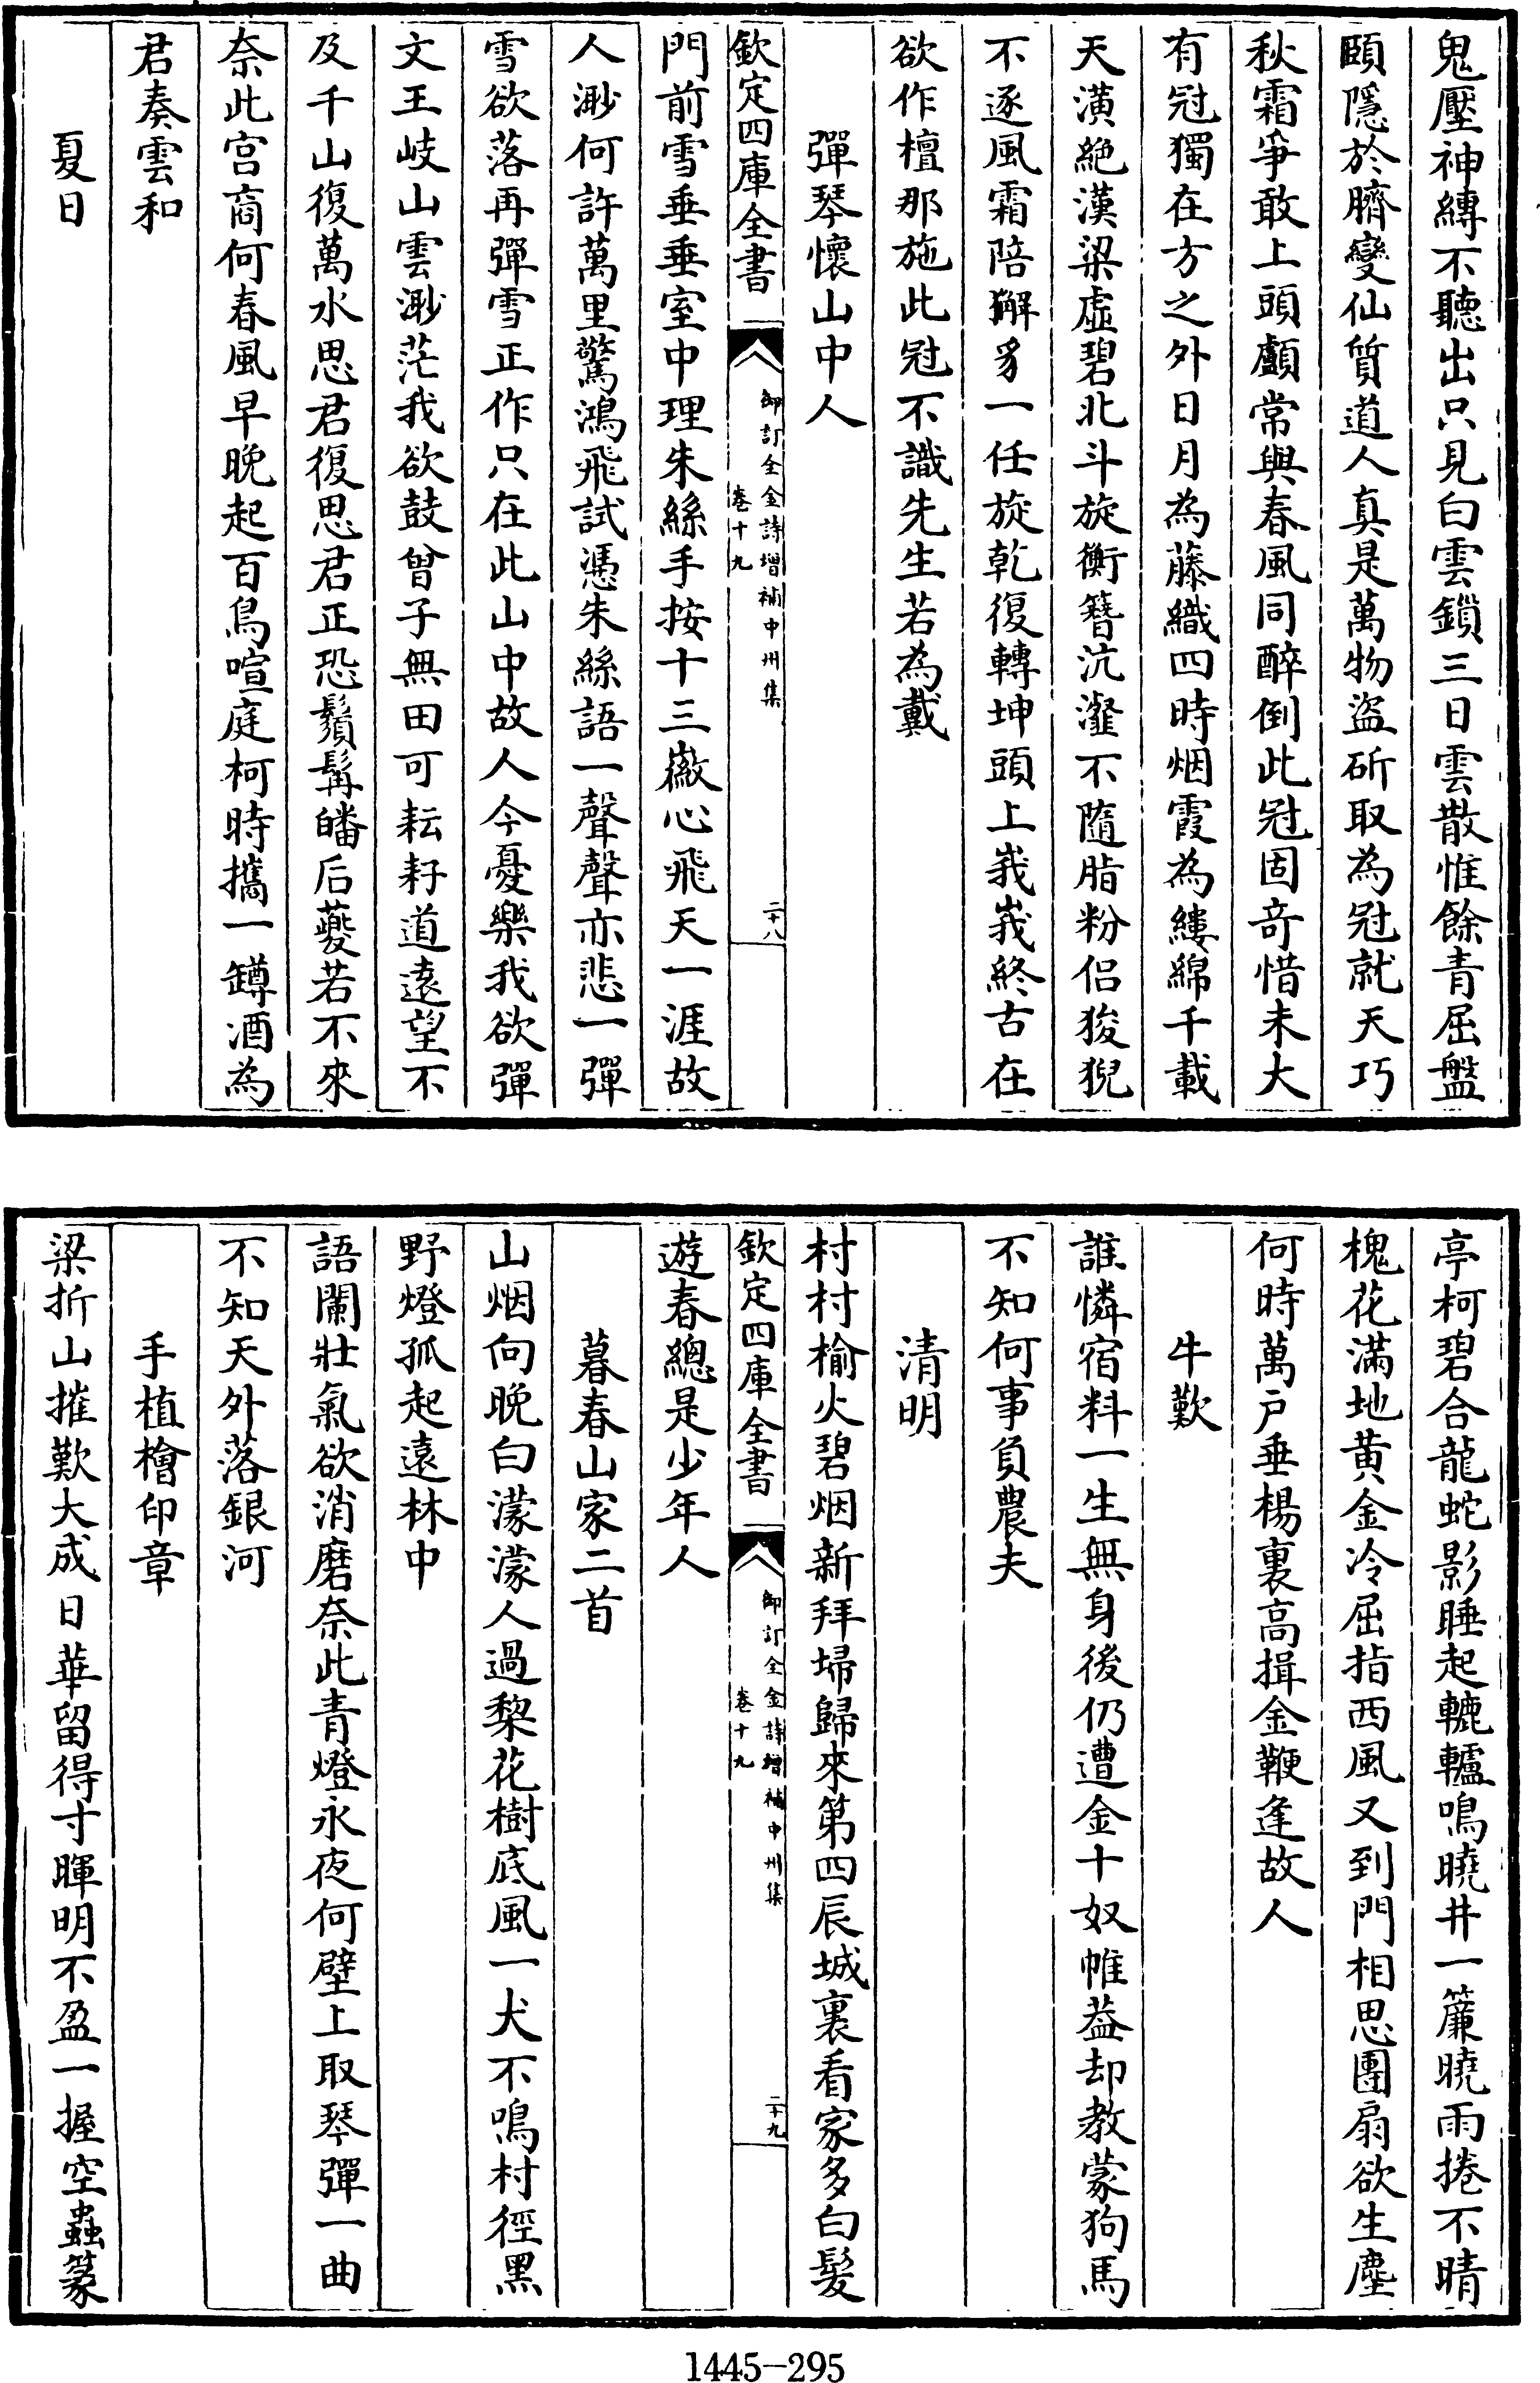 鬼壓神縳不聽出只見白雲鎖三日雲散惟餘青屈盤
頤隱於臍變仙質道人真是萬物盜斫取為冠就天巧
秋霜爭敢上頭顱常與春風同醉倒此冠固奇惜未大
有冠獨在方之外日月為藤織四時烟霞為縷綿千載
天潢絶漢梁虛碧北斗旋衡簪沆瀣不隨脂粉侣狻猊
不逐風霜陪獬豸一任旋乾復轉坤頭上峩峩終古在
欲作檀那施此冠不識先生若為戴
彈琴懷山中人
欽定四庫全書
御訂全金詩增補中州集
卷十九
二十八
門前雪垂垂室中理朱絲手按十三徽心飛天一涯故
人渺何許萬里驚鴻飛試憑朱絲語一聲聲亦悲一彈
雪欲落再彈雪正作只在此山中故人今憂樂我欲彈
文王岐山雲渺茫我欲鼓曾子無田可耘耔道遠望不
及千山復萬水思君復思君正恐鬚髯皤后夔若不來
奈此宫商何春風早晚起百鳥喧庭柯時攜一罇酒為
君奏雲和
夏日
亭柯碧合龍蛇影睡起轆轤鳴曉井一簾曉雨捲不晴
槐花滿地黄金冷屈指西風又到門相思團扇欲生塵
何時萬戸垂楊裏高揖金鞭逢故人
牛歎
誰憐宿料一生無身後仍遭金十奴帷葢却教蒙狗馬
不知何事負農夫
清明
村村榆火碧烟新拜埽歸來第四辰城裏看家多白髪
欽定四庫全書
御訂全金詩增補中州集
卷十九
二十九
遊春總是少年人
暮春山家二首
山烟向晚白濛濛人過棃花樹底風一犬不鳴村徑黑
野燈孤起遠林中
語闌壯氣欲消磨奈此青燈永夜何壁上取琴彈一曲
不知天外落銀河
手植檜印章
梁折山摧歎大成日華留得寸暉明不盈一握空蟲篆
1445-295